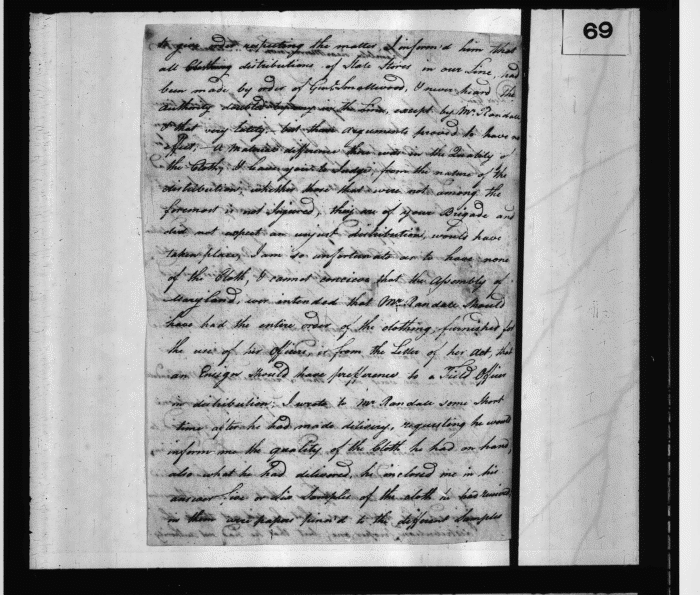 69
to give order respecting the matter, I inform'd him that
all Clothing distributions of State Stores in our Line, had
been made by order of Genl. Smallwood, I never heard the
authority in the Line, except by Mr. Randall
& that very lately, but these arguments proved to have no
effect, A Material difference there was in the Quality of
the Cloth, I leave you to Judge, from the nature of the
distribution, whether those that were not among the
foremost is not Injured, they are of your Brigade and
did not expect an unjust distribution, would have
taken place, I am so unfortunate as to have none
of the Cloth, I cannot conceive that the Assembly of
Maryland, ever intended that Mr. Randall should
have had the entire order of the clothing, furnished for
the use of her Officers, or from the Letter of her Act, that
an Ensign should have preference to a Field Officer
in distribution; I wrote to Mr. Randall some short
time after he had made delivery, requesting he would
inform me the quality of the Cloth he had on hand,
also what he had delivered, he inclosed me in his
answer five or six Samples of the cloth he had received,
in them were papers pinn'd to the different Samples